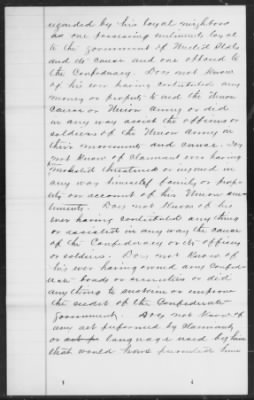 regarded by his loyal neighbors
as one possessing sentiments loyal
to the government of United States
and its cause and one opposed to
the Confederacy. Does not know
of his ever having contributed any
money or property to aid the Union
cause or Union Army or did
in any way assist the officers or
soldiers of the Union Army in
their movements and cause. Does
not know of Claimant ever having
been molested threatened or injured in
any way himself family or prop-
erty on account of his Union sen-
timents. Does not know of his
ever having contributed any thing
or assisted in any way the cause
of the Confederacy or its officers
or soldiers. Does not know of
his ever having owned any Confed-
erate bonds or securities or did
any thing to sustain or improve
the credit of the Confederate
government. Does not know of
any act performed by claimant
or language used by him
that would have prevented him